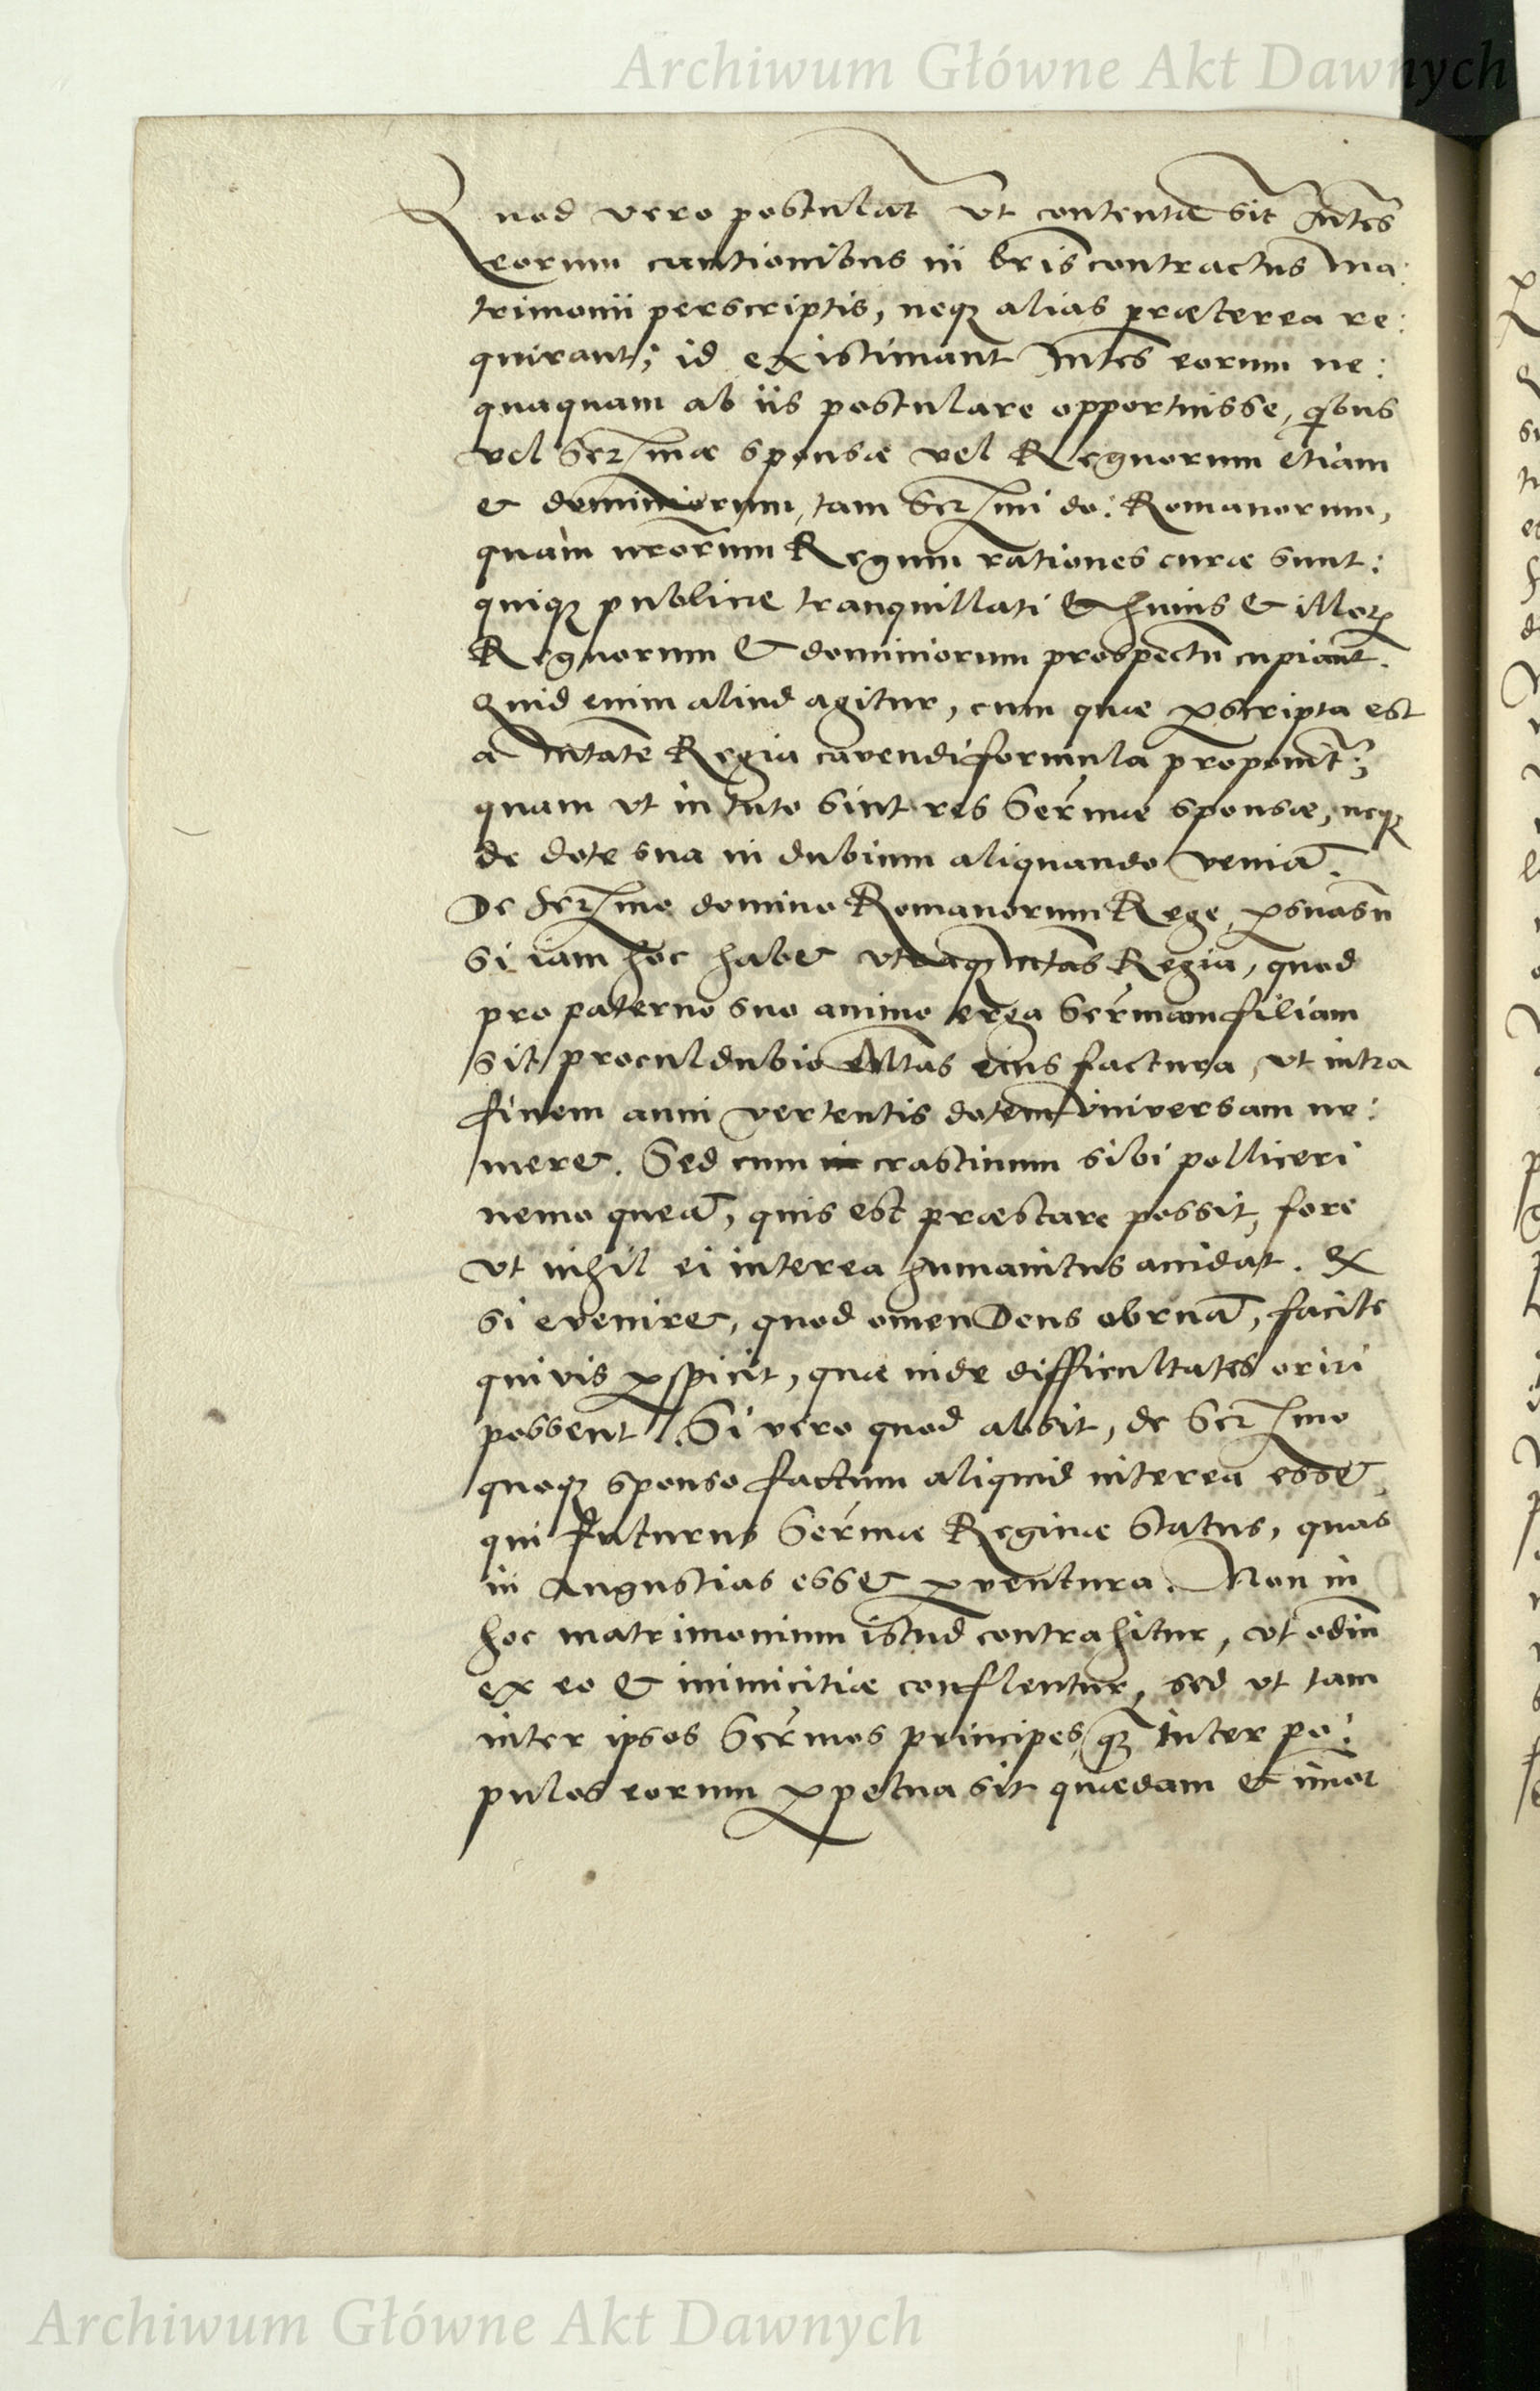 Archiwum Główne Akt Dawnych
Quod vero postulat ut contentae sit Mtes
eorum cautionibus in bris contractus ma:
trimonii perscriptis, neq; alias præterea re:
quirant; id existimant Mtes eorum ne:
quaquam ab iis postulare opportuisse, qbus
vel Serᵐᵃᵉ sponsæ vel Regnorum etiam
& dominiorum, tam Serᵐⁱ do: Romanorum,
quàm nrorum Regum rationes curæ sunt:
quiq; publicæ tranquillati & huius & illoꝝ
Regnorum & dominiorum prospectū cupiant.
Quid enim aliud agitur, cum quæ ꝑscripta est
a Mtate Regia cavendi formula proponitᷣ;
quam ut in tuto sint res Sermæ sponsæ, neq;
de dote sua in dubium aliquando veniat.
De Serᵐᵒ domino Romanorum Rege, ꝑsuasū
si iam hoc habet utraq; Mtas Regia, quod
pro paterno suo animo erga Sermam filiam
sit proculdubio Mtas eius factura, ut intra
finem anni vertentis dotem universam nu:
meret. Sed cum crastinum sibi polliceri
nemo queat, quis est præstare possit, fore
ut nihil ei interea humanitus accidat. Et
si eveniret, quod omen Deus obruat, facile
quivis ꝑspicit, quæ inde difficultates oriri
possent. Si vero quod absit, de Serᵐᵒ
quoq; sponso factum aliquid interea esset,
qui futurus Sermæ Reginæ status, quas
in Angustias esset ꝑventura. Non in
hoc matrimonium istud contrahitur, ut odiū
ex eo & inimicitiæ conflentur, sed ut tam
inter ipsos Sermos principes, qᷓ inter po:
pulos eorum ꝑpetua sit quædam & imor
Archiwum Główne Akt Dawnych